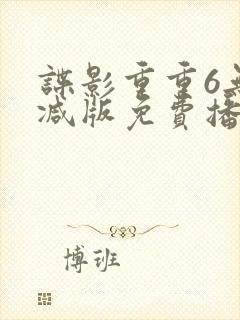 諜影重重6無
減版免費播
博班